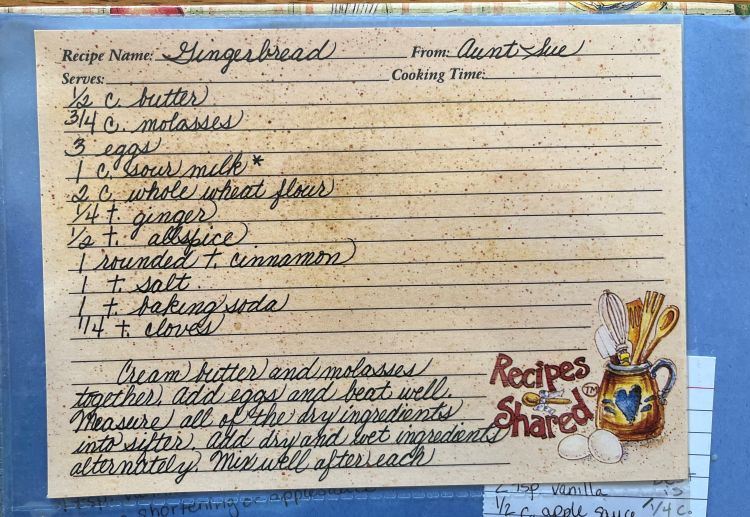 Recipe Name: Gingerbread From: Aunt Sue
Serves: Cooking Time:
1/2 c. butter
3/4 c. molasses
3 eggs
1 c. sour milk *
2 c whole wheat flour
1/4 t. ginger
1/2 t. allspice
1 rounded t. cinnamon
1 t. salt
1 t. baking soda
1/4 t. cloves
Cream butter and molasses
together, add eggs and beat well.
Measure all of the dry ingredients
into sifter. Add dry and wet ingredients
alternately. Mix well after each
Recipes
Shared TM
shortening or applesauce
2 tsp vanilla
1/2 c. apple sauce 1/4 c.